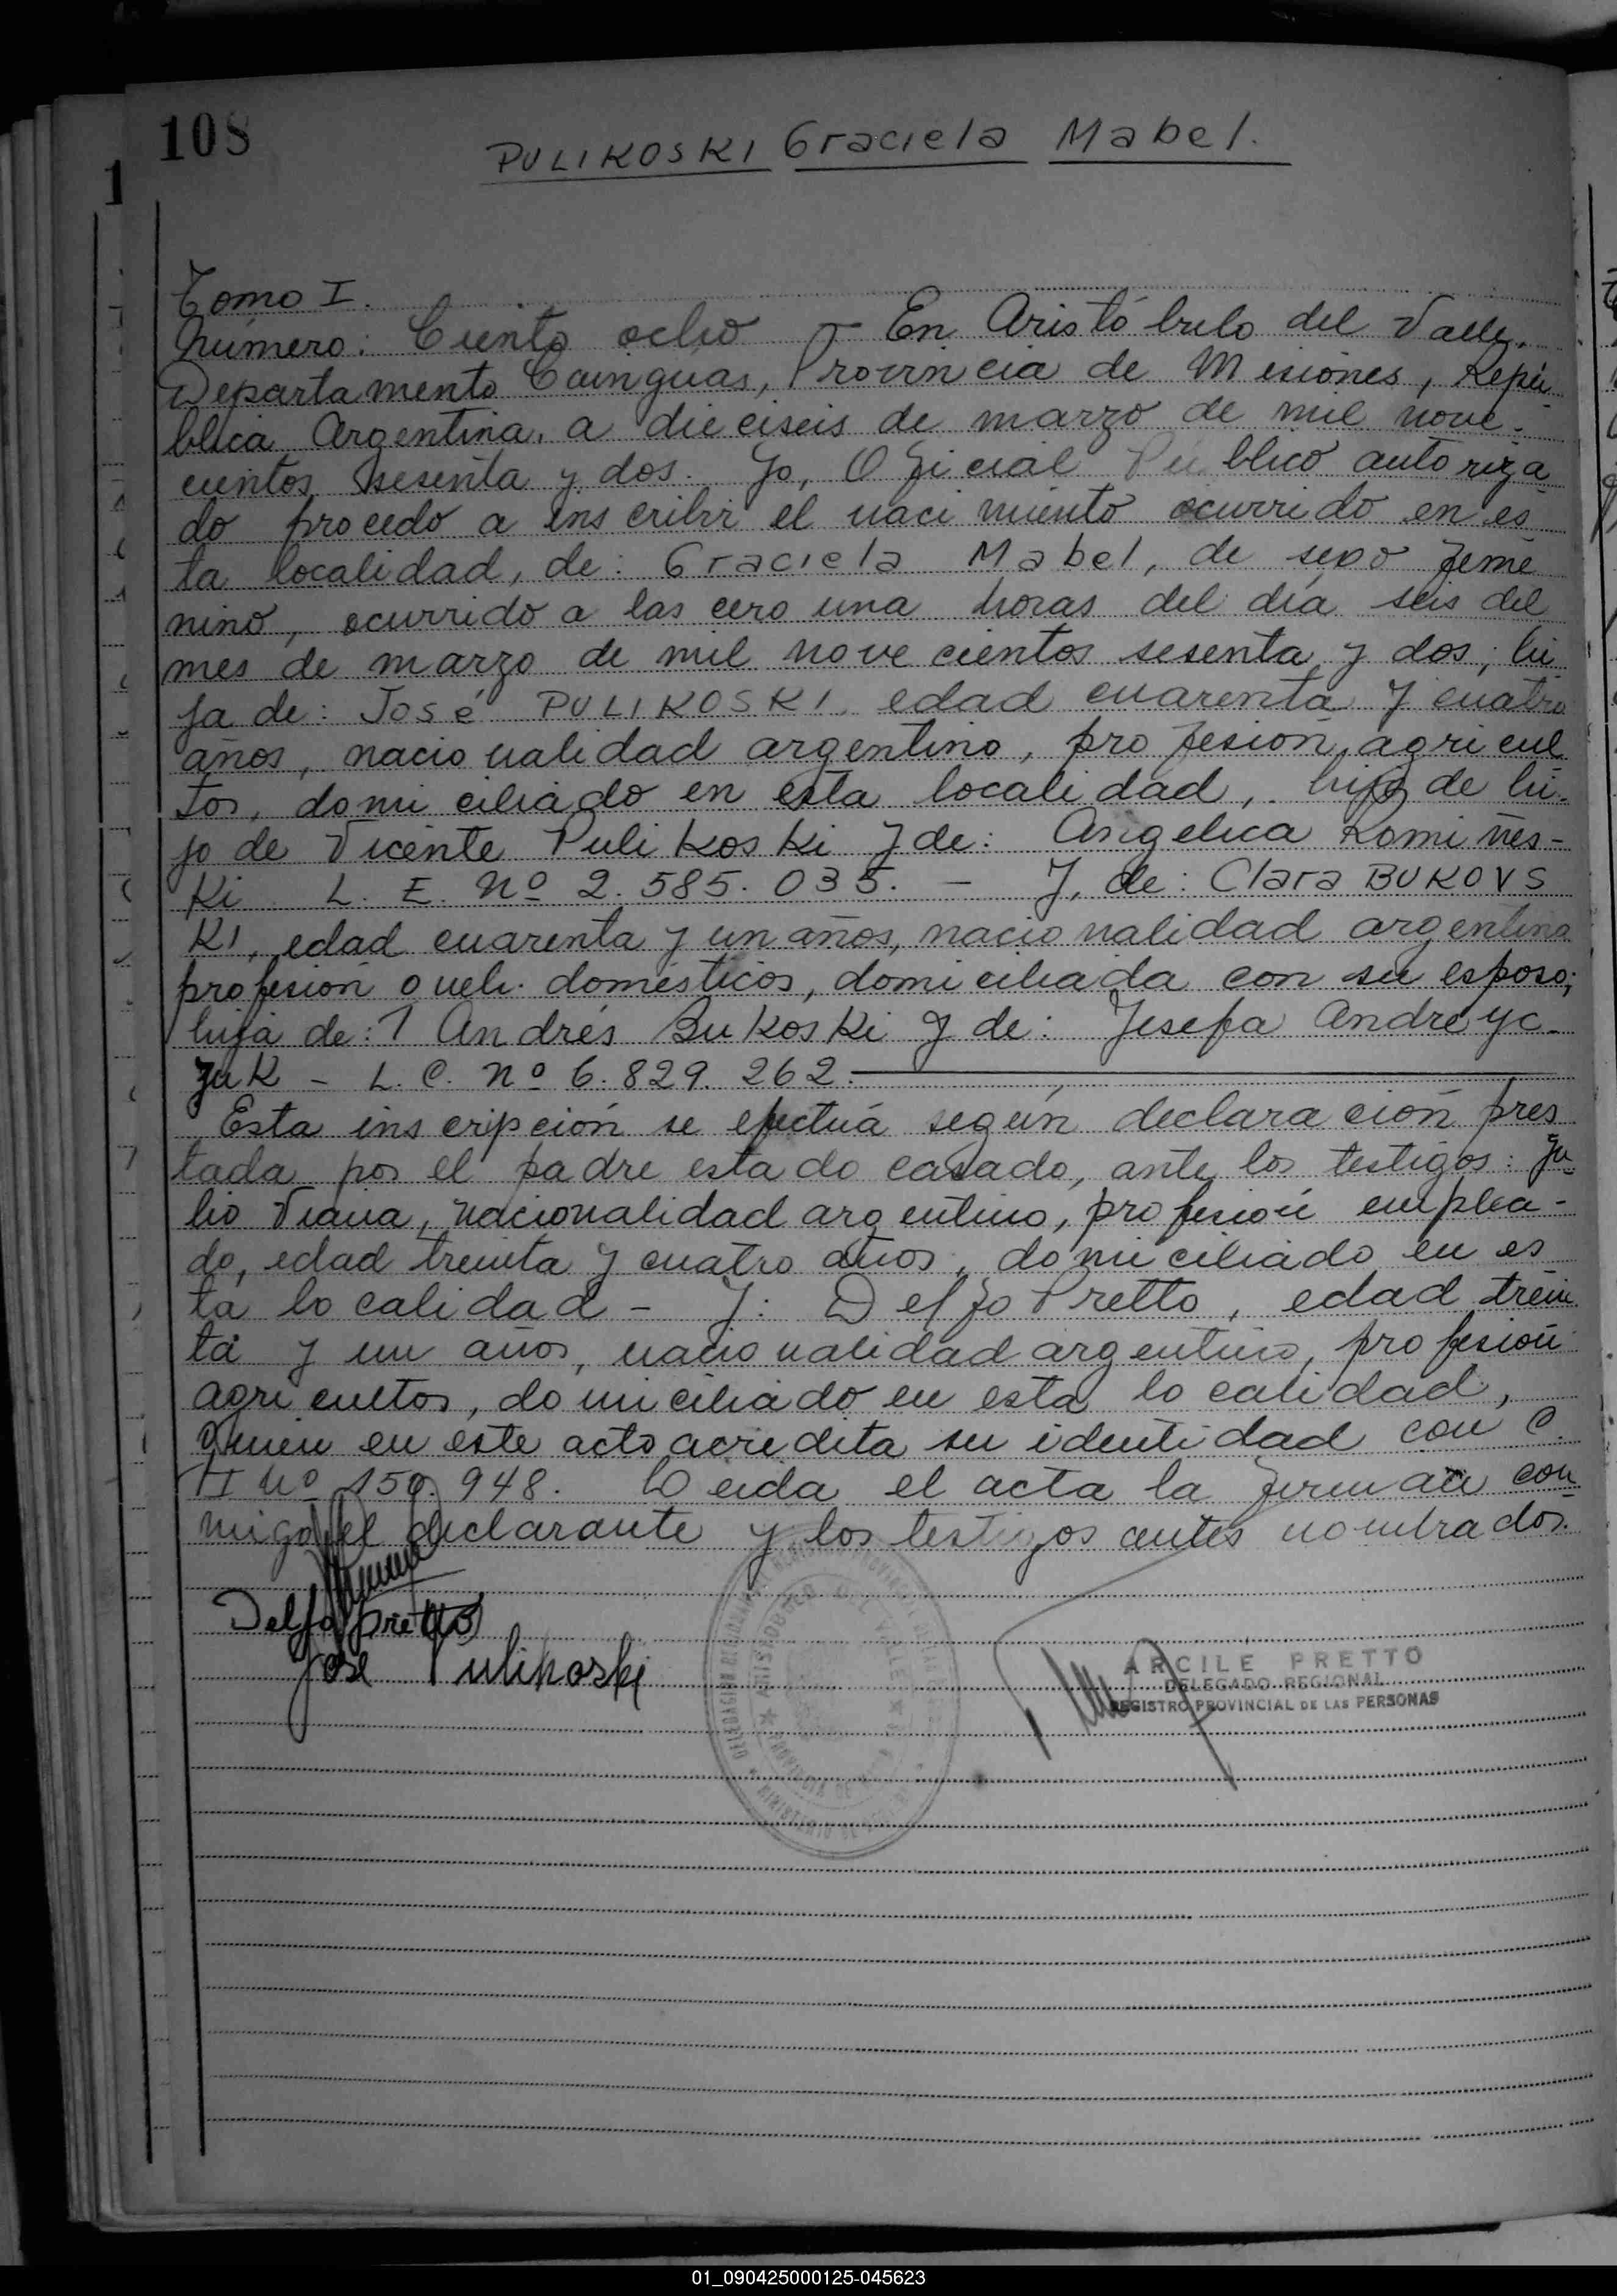 108
PULIKOSKI Graciela Mabel.
1
Tomo I.
Número: Ciento ocho - En Aristóbulo del Valle,
Departamento Cainguás, Provincia de Misiones, Repú
blica Argentina, a dieciseis de marzo de mil nove-
cientos sesenta y dos. Yo, Oficial Público autoriza
do procedo a inscribir el nacimiento ocurrido en es
ta localidad, de: Graciela Mabel, de sexo feme
nino, ocurrido a las cero una horas del día seis del
mes de marzo de mil novecientos sesenta y dos; hi
ja de: José PULIKOSKI, edad cuarenta y cuatro
años, nacionalidad argentino, profesión, agricul
tor, domiciliado en esta localidad, hijo de hi-
jo de Vicente Pulikoski y de: Angelica Romiñes-
Ki L. E. Nº 2.585.035. - Y, de: Clara BUKOVS
KI, edad cuarenta y un años, nacionalidad argentina
profesión queh. domésticos, domiciliada con su esposo;
hija de: Andrés Bukoski y de: Jesefa Andreyc-
zuk - L. C. nº 6.829.262.
Esta inscripción se efectuá según declaración pres
tada por el padre estado casado, ante los testigos: Ju
lio Viana, nacionalidad argentino, profesión emplea-
do, edad treinta y cuatro años, domiciliado en es
ta localidad - Y: Delfo Pretto, edad trein
ta y un años, nacionalidad argentino, profesión
agricultor, domiciliado en esta localidad,
quien en este acto acredita su identidad con C.
I Nº 150.948. Leida el acta la firman con
migo el declarante y los testigos antes nombrados.
Delfo Pretto
José Pulikoski
ARCILE PRETTO
DELEGADO REGIONAL
REGISTRO PROVINCIAL DE LAS PERSONAS
01_090425000125-045623